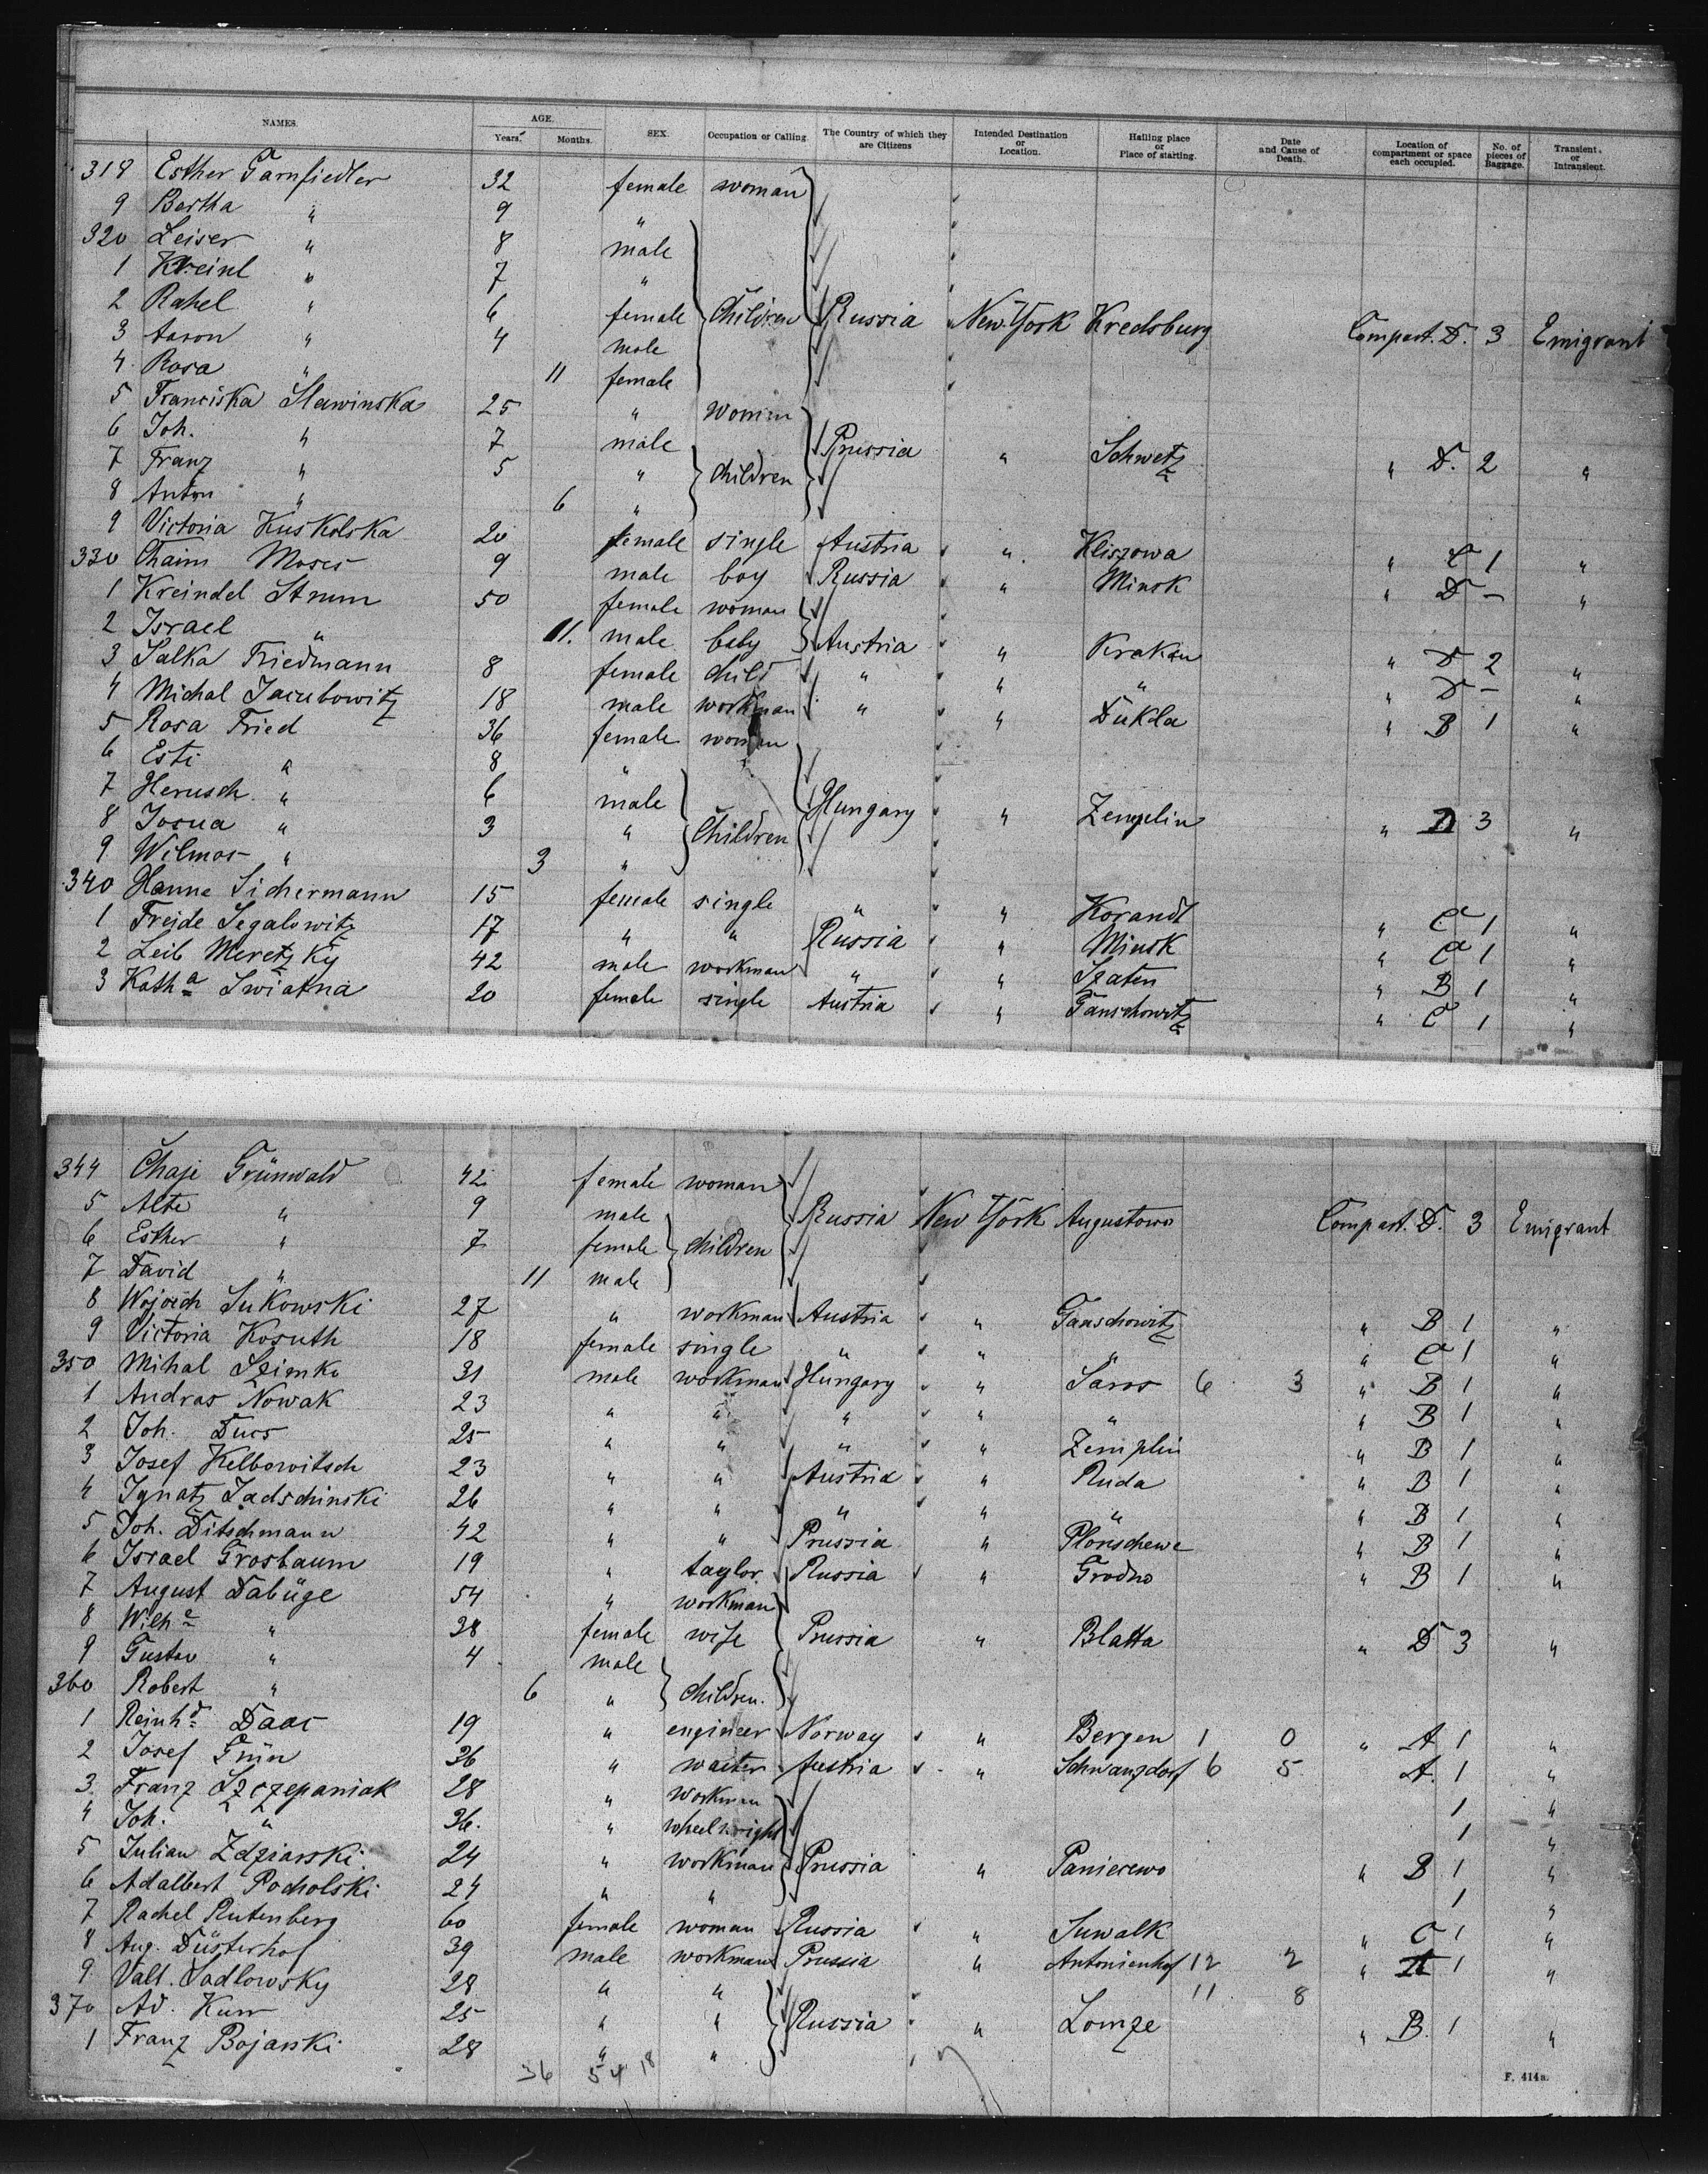 NAMES. AGE. Years. Months. SEX. Occupation or Calling. The Country of which they are Citizens Intended Destination or Location. Hailing place or Place of starting. Date and Cause of Death. Location of compartment or space each occupied. No. of pieces of Baggage. Transient, or Intransient.
318 Esther Garnfiedler 32 female woman
9 Bertha " 9 "
320 Leiser " 8 male
1 Kreinl " 7 "
2 Rahel " 6 female Children Russia New York Kredsburg Compart. D. 3 Emigrant
3 Aaron " 4 male
4 Rosa " 11 female
5 Franciska Slawinska 25 " Woman
6 Joh. " 7 male Prussia " Schwetz " D. 2 "
7 Franz " 5 " Children
8 Anton " 6 "
9 Victoria Kuskolska 20 female single Austria " Kliszowa " C 1 "
330 Chaim Moses 9 male boy Russia " Minsk " D - "
1 Kreindel Strum 50 female woman
2 Israel " 11. male baby Austria " Krakau " D 2 "
3 Salka Friedmann 8 female child " " " " D - "
4 Michal Jacubowitz 18 male workman " " Dukla " B 1 "
5 Rosa Fried 36 female woman
6 Esti " 8 "
7 Herusch " 6 male Hungary " Zemplin " D 3 "
8 Josua " 3 " Children
9 Wilmos " 3 "
340 Hanna Sichermann 15 female single " " Korandt " C 1 "
1 Freide Segalowitz 17 " " Russia " Minsk " C 1 "
2 Leib Meretzky 42 male workman " " Szaten " B 1 "
3 Katha Swiatna 20 female single Austria " Ganschowitz " C 1 "
344 Chaje Grünwald 42 female woman
5 Alte " 9 male Russia New York Augustowo Compart. D. 3 Emigrant
6 Esther " 7 female children
7 David " 11 male
8 Wojcich Sukowski 27 " workman Austria " Ganschowitz " B 1 "
9 Victoria Kosuth 18 female single " " " " C 1 "
350 Mihal Szimko 31 male workman Hungary " Saros 6 3 " B 1 "
1 Andras Nowak 23 " " " " " " B 1 "
2 Joh. Ducs 25 " " " " Zemplin " B 1 "
3 Josef Kelbowitsch 23 " " Austria " Ruda " B 1 "
4 Ignatz Ladschinski 26 " " " " " " B 1 "
5 Joh. Ditschmann 42 " " Prussia " Plonschewe " B 1 "
6 Israel Grosbaum 19 " taylor Russia " Grodno " B 1 "
7 August Dabüge 54 " workman
8 Wilhe " 38 female wife Prussia " Blatta " D 3 "
9 Gustav " 4 male
360 Robert " 6 " children.
1 Reinhd Daae 19 " engineer Norway " Bergen 1 0 " A 1 "
2 Josef Grün 36 " waiter Austria " Schwanzdorf 6 5 A. 1 "
3. Franz Szczepaniak 28 " workman 1 "
4 Joh. " 36. " wheelwright 1 "
5 Julian Zdziarski 24 " workman Prussia " Panierewo " B 1 "
6 Adalbert Pocholski 24 " " 1 "
7 Rachel Rutenberg 60 female woman Russia " Suwalk " C 1 "
8 Aug. Düsterhof 39 male workman Prussia " Antonienhof 12 2 " A 1 "
9 Vall. Sadlowsky 28 " " 11 8
370 Ad. Kurr 25 " " Russia " Lomze " B. 1 "
1 Franz Bojarski 28 " "
36 54 18
F. 414a.